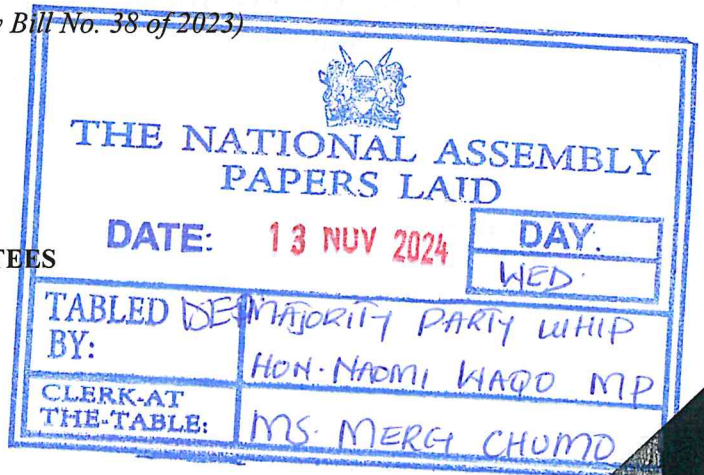 y Bill No. 38 of 2023)
THE NATIONAL ASSEMBLY
PAPERS LAID
DATE: 13 NOV 2024 DAY.
WED.
TEES
TABLED BY: MAJORITY PARTY WHIP
HON. NAOMI WAQO MP
CLERK-AT THE-TABLE: MS. MERCY CHUMO